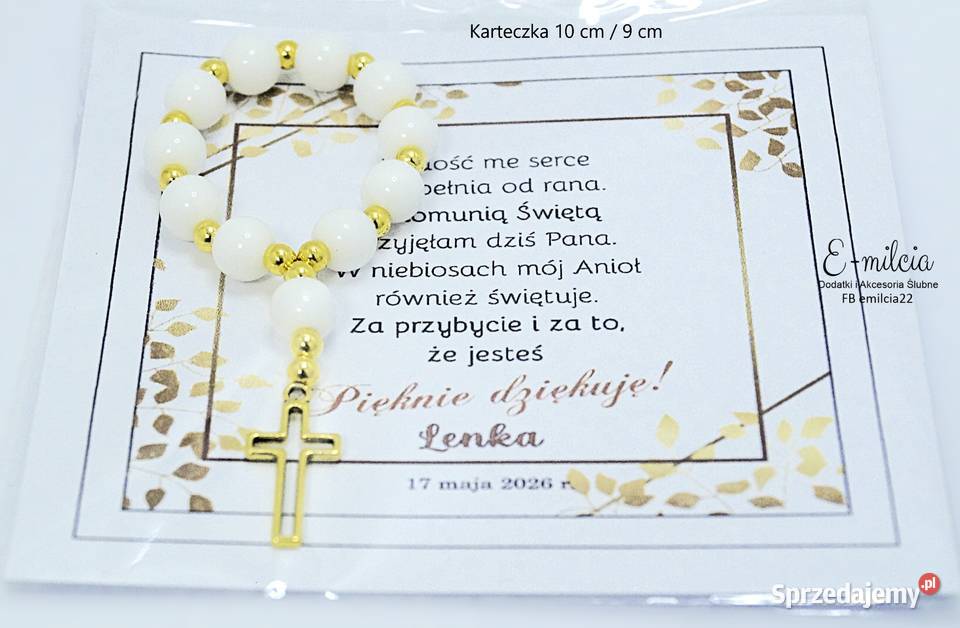 Karteczka 10 cm / 9 cm
me serce
od rana.
Świętą
dziś Pana.
W niebiosach mój Anioł
również świętuje.
Za przybycie i za to,
że jesteś
Pięknie dziękuję!
Lenka
17 maja 2026 r.
E-milcia
Dodatki i Akcesoria Ślubne
FB emilcia22
Sprzedajemy.pl